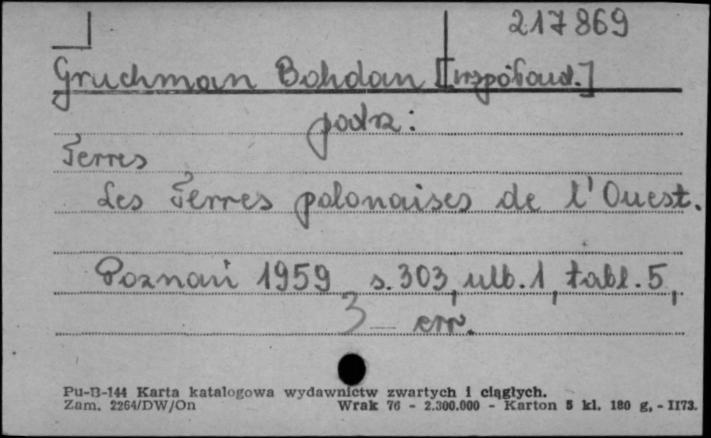 217869
Gruchman Bohdan [współaud.]
podz:
Terres
Les Terres polonaises de l'Ouest.
Poznań 1959 s.303, ulb.1, tabl.5,
3 err.
Pu-B-144 Karta katalogowa wydawnictw zwartych i ciągłych.
Zam. 2264/DW/On Wrak 76 - 2.300.000 - Karton 5 kl. 180 g. - II73.